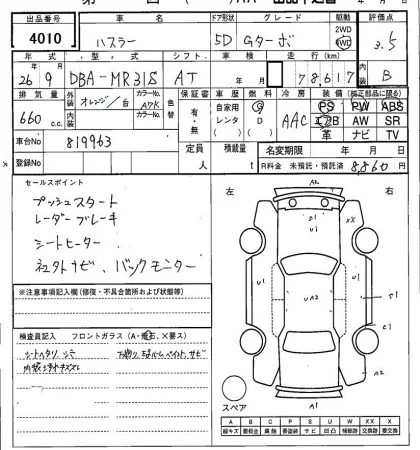 出品番号 車名 ドア形状 グレード 駆動 評価点
4010 ハスラー 5D Gターボ 2WD 4WD 3.5
年式 型式 シフト 車検 走行(km) 内装
26 9 DBA-MR31S AT 78,617 B
排気量 外装 カラーNo. 色替 保証書 車歴 燃料 冷房 装備(純正部品に限る)
660 c.c. オレンジ/白 A7K 有・無 自家用 レンタ G D AAC PS PW ABS
エアB AW SR
内装 カラーNo. 革 ナビ TV
車台No. 819963 定員 人 積載量 t 名変期限 年 月 日
登録No. R料金 未預託・預託済 8,860円
セールスポイント
プッシュスタート
レーダーブレーキ
シートヒーター
ネクストナビ、バックモニター
左 右
A2
S1
XX
U1
A1
U1
U1
UA2
S1
C1
A2
A1
スペア
※注意事項記入欄(修復・不具合箇所および状態等)
検査員記入 フロントガラス(A・飛石、X要ス)
シートヘタリ、シミ 下廻り
A B C P S U W X XX
線キズ 要板金 腐食 要塗装 サビ 凹凸 補修跡 要交換